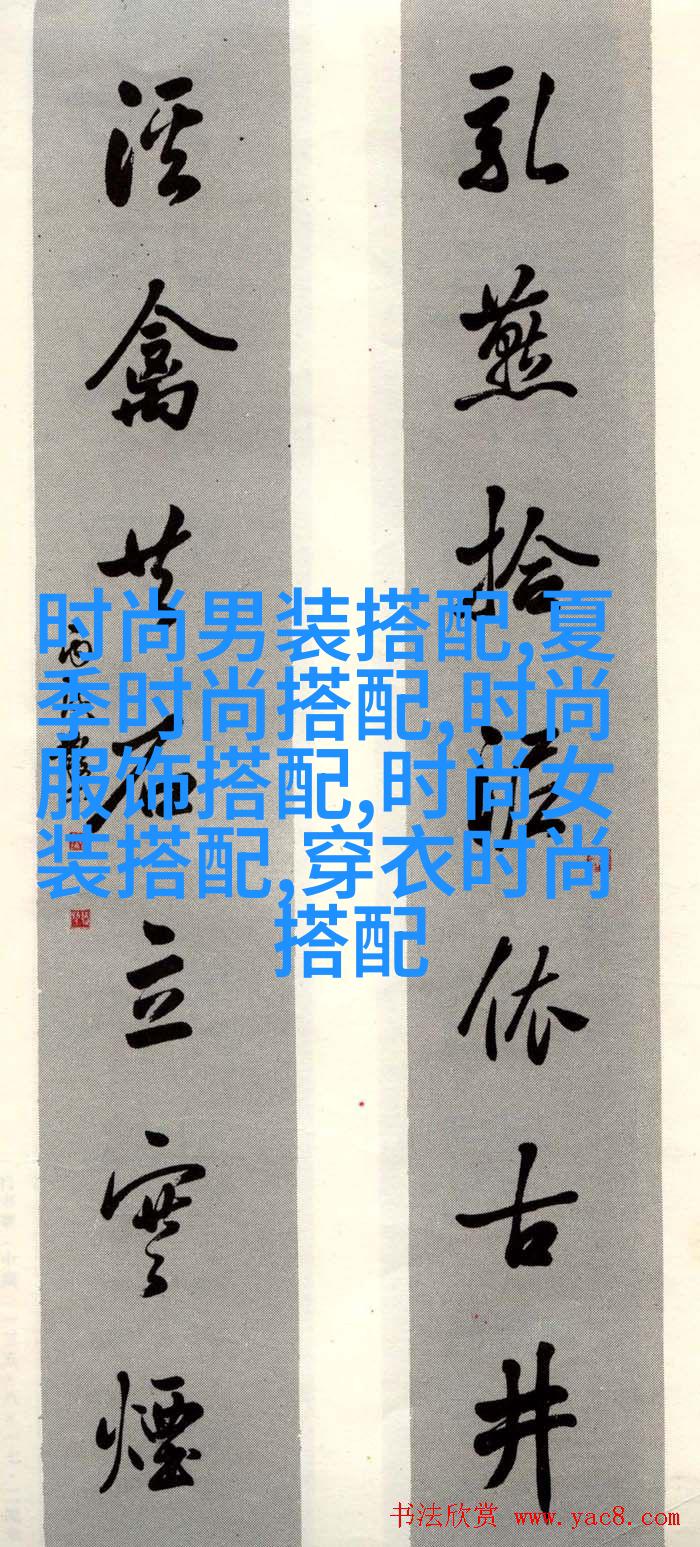 乳燕拾泥依古井
溪禽共石立寒煙
时尚男装搭配,夏
季时尚搭配,时尚
服饰搭配,时尚女
装搭配,穿衣时尚
搭配
书法欣赏 www.yac8.com